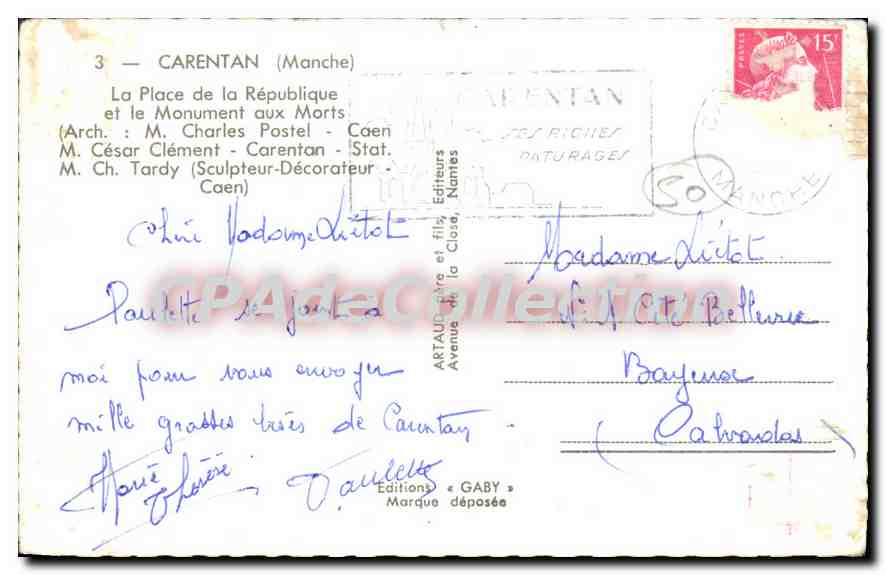 3 — CARENTAN (Manche)
La Place de la République
et le Monument aux Morts
(Arch. : M. Charles Postel - Caen
M. César Clément - Carentan - Stat.
M. Ch. Tardy (Sculpteur-Décorateur -
Caen)
POSTES 15F
CARENTAN
SES RICHES
PATURAGES
MANCHE
CO
ARTAUD père et fils, Editeurs
Avenue de la Close, Nantes
Chère Madame Liétot
Paulette se joint a
moi pour vous envoyer
mille grosses bises de Carentan
Marie Thérèse Paulette
Editions « GABY »
Marque déposée
Madame Liétot
Cité Bellevue
Bayeux
(Calvados)
CPAdeCollection